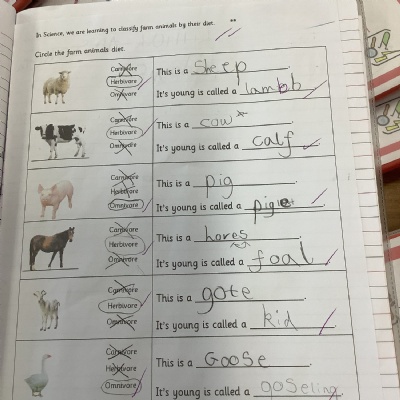 In Science, we are learning to classify farm animals by their diet.
Circle the farm animals diet.
Carnivore
Herbivore
Omnivore
This is a Sheep
It's young is called a lambb
Carnivore
Herbivore
Omnivore
This is a cow
It's young is called a calf
Carnivore
Herbivore
Omnivore
This is a pig.
It's young is called a piglet
Carnivore
Herbivore
Omnivore
This is a hores.
It's young is called a foal
Carnivore
Herbivore
Omnivore
This is a gote.
It's young is called a kid
Carnivore
Herbivore
Omnivore
This is a Goose.
It's young is called a gosling